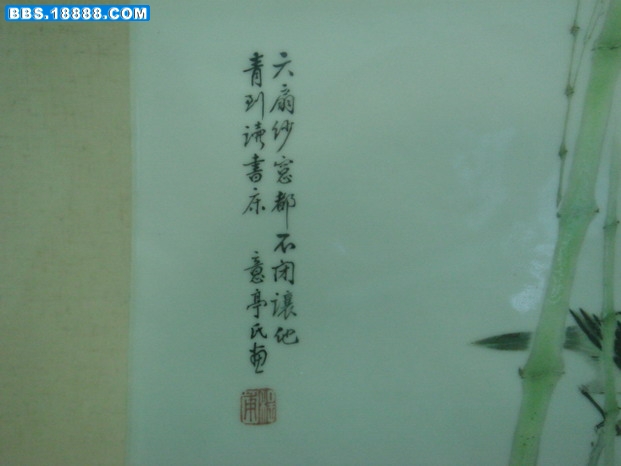 BBS.18888.COM
六扇纱窓都不闭讓他
青到读書床 意亭氏画